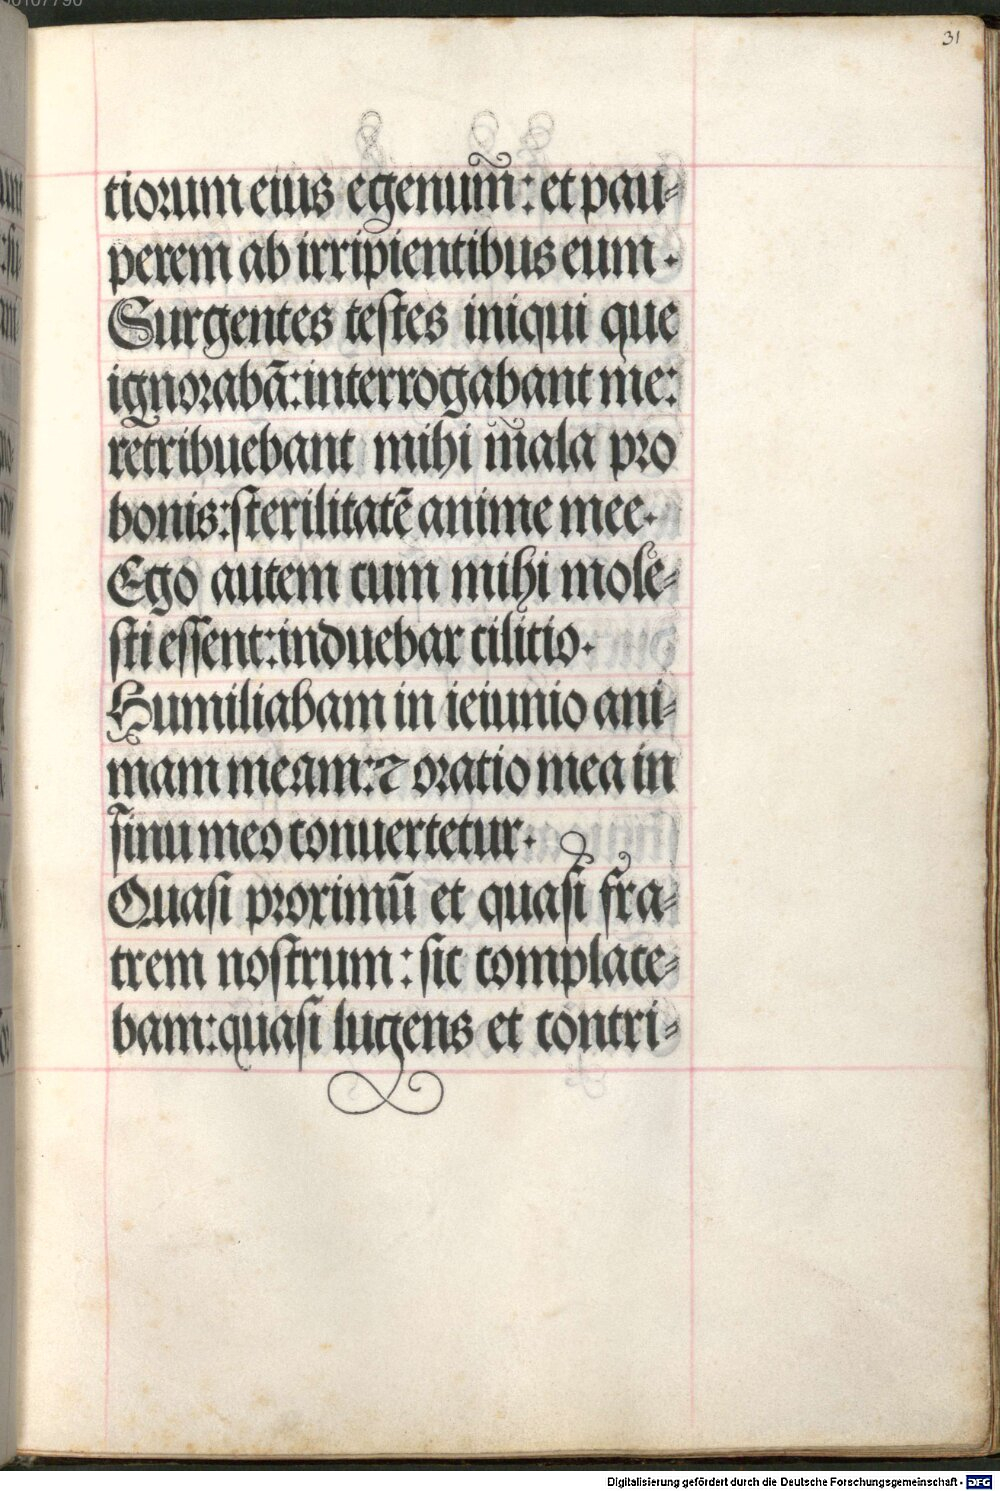 31
tiorum eius egenum̃: et pau-
perem ab irripientibus eum.
Surgentes testes iniqui que
ignorabā: interrogabant me:
retribuebant mihi mala pro
bonis: sterilitatē anime mee.
Ego autem cum mihi mole-
sti essent: induebar cilicio.
Humiliabam in ieiunio ani-
mam meam: ⁊ oratio mea in
sinu meo conuertetur.
Quasi proximū et quasi fra-
trem nostrum: sic complace-
bam: quasi lugens et contri-
Digitalisierung gefördert durch die Deutsche Forschungsgemeinschaft - DFG